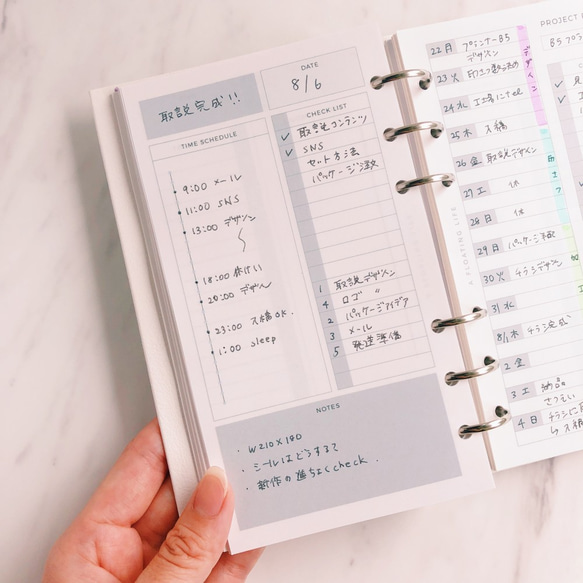 取説完成!!
DATE
8/6
TIME SCHEDULE
9:00 メール
11:00 SNS
13:00 デザイン
18:00 休けい
20:00 デザイン
23:00 入稿OK.
1:00 sleep
CHECK LIST
✓ 取説コンテンツ
✓ SNS
セット方法
パッケージ注文
1 取説デザイン
4 ロゴ 〃
2 パッケージアイデア
3 メール
5 発送準備
NOTES
・W210×180
・シールはどうする?
・新作の進ちょくcheck.
A FLOATING LIFE
PROJECT
22 月 プランナーB5
デザイン
23 火
24 水 工場にtel
25 木 入稿
26 金 取説デザイン
27 土 休
28 日 休
29 日 パッケージ手配
30 火 チラシデザイン
31 水
8/1 木 チラシ完成
2 金
3 土 納品
さつえい
4 日 チラシに
↳ 入稿
デザイン
B5プラ